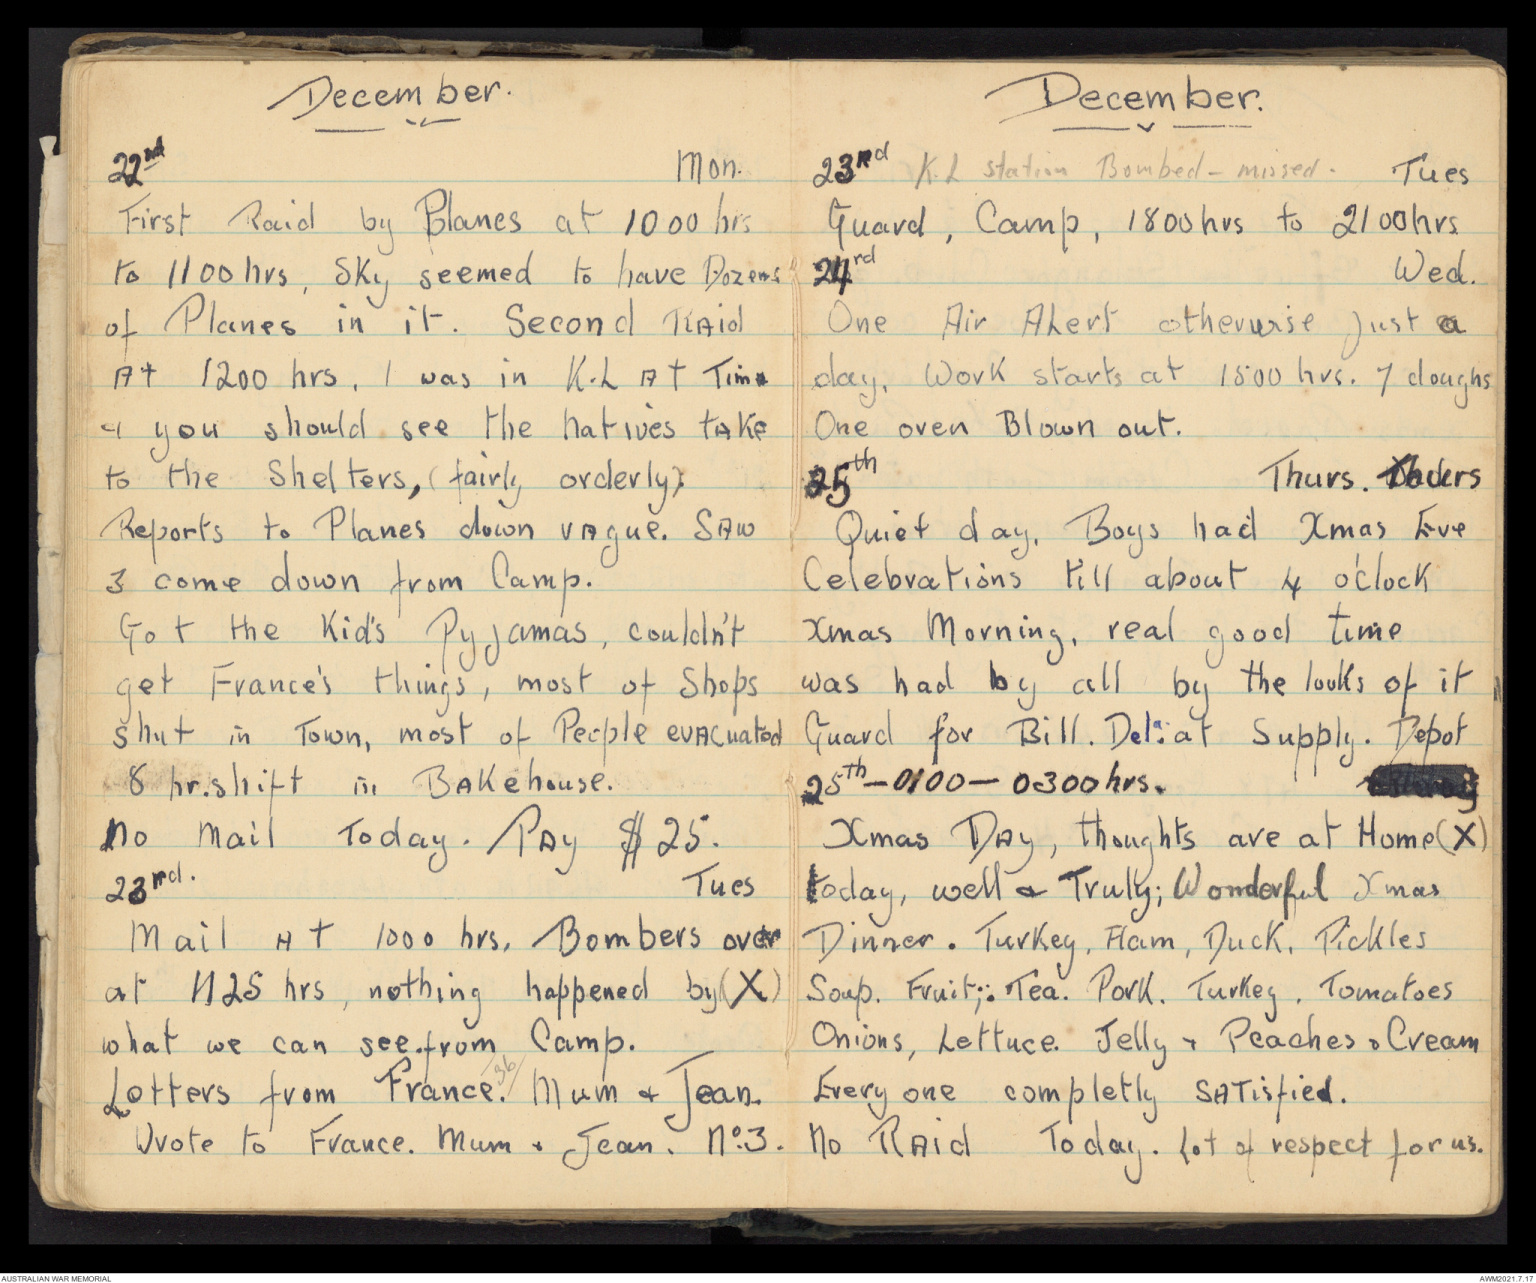 December.
22nd Mon.
First Raid by Planes at 1000 hrs
to 1100 hrs, Sky seemed to have Dozens
of Planes in it. Second Raid
At 1200 hrs, I was in K.L At Time
& you should see the natives take
to the Shelters, (fairly orderly);
Reports to Planes down vague. Saw
3 come down from Camp.
Got the Kid's Pyjamas, couldn't
get France's things, most of Shops
shut in Town, most of People evacuated
8 hr. shift in Bakehouse.
No Mail Today. Pay $25.
23rd. Tues
Mail At 1000 hrs, Bombers over
at 1125 hrs, nothing happened by (X)
what we can see from Camp.
Letters from France. 36/ Mum & Jean.
Wrote to France. Mum & Jean. No.3.
December.
23rd K.L station Bombed - missed. Tues
Guard, Camp, 1800hrs to 2100hrs
24rd Wed.
One Air Alert otherwise just a
day, Work starts at 1500 hrs. 7 doughs
One oven Blown out.
25th Thurs.
Quiet day, Boys had Xmas Eve
Celebrations till about 4 o'clock
Xmas Morning, real good time
was had by all by the looks of it
Guard for Bill. at Supply. Depot
25th - 0100 - 0300 hrs.
Xmas Day, thoughts are at Home (X)
today, well & Truly; Wonderful Xmas
Dinner. Turkey, Ham, Duck, Pickles
Soup. Fruit; Tea. Pork. Turkey, Tomatoes
Onions, Lettuce. Jelly & Peaches & Cream
Every one completly satisfied.
No Raid Today. Lot of respect for us.
AUSTRALIAN WAR MEMORIAL
AWM2021.7.17